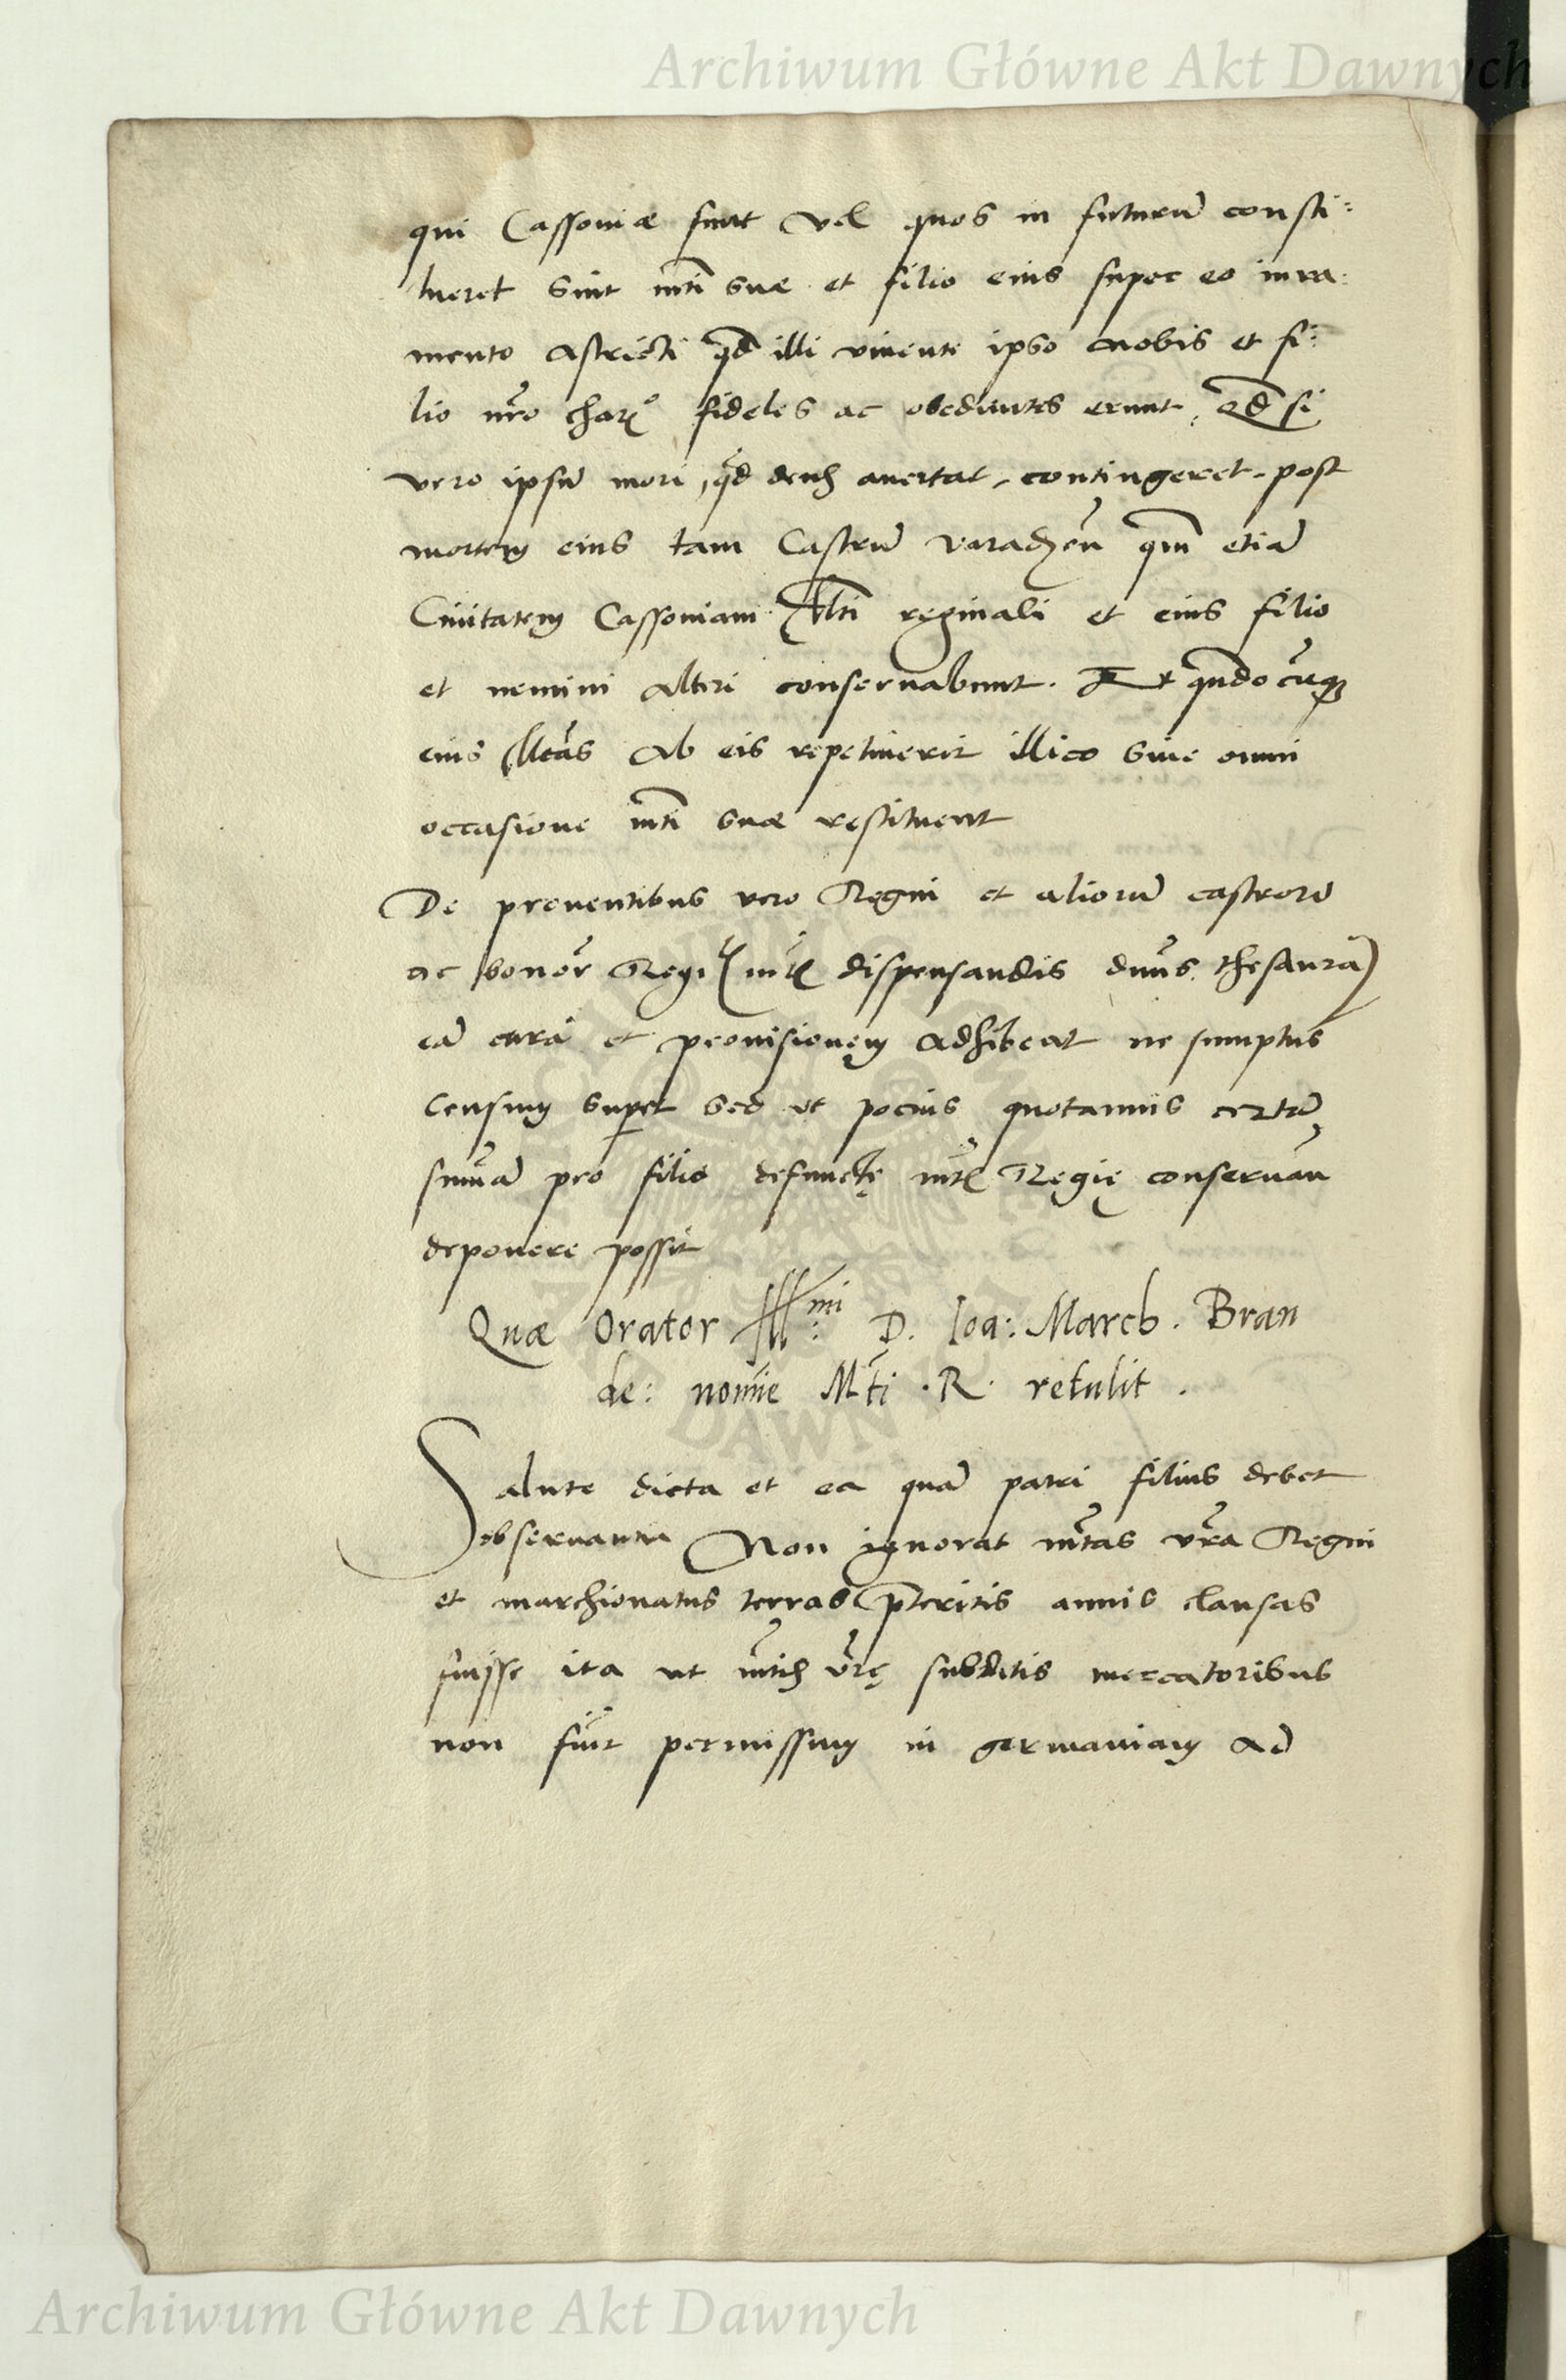 Archiwum Główne Akt Dawnych
qui Cassoviæ sunt vel quos in futurū consti:
tueret sint mti suæ et filio eius super eo iura:
mento astricti qd illi vivente ipso nobis et fi:
lio nro charo fideles ac obedientes erunt, Qd si
vero ipsū mori, qd deus avertat, contingeret, post
mortem eius tam Castrū varadzen qm etiā
Civitatem Cassoviam Mti reginali et eius filio
et nemini alteri conservabunt. Et quandocūq
eius Mtas ab eis repetiverit illico sine omni
occasione mti suæ restituent
De proventibus vero Regni et aliorū castrorū
ac bonor Regiæ mtis dispensandis dnus thesaura)
eā curā et provisionem adhibeat ne sumptus
censum superet sed ut pocius quotannis certā
summā pro filio defunctę mtis Regię conservan
deponere possit
Quæ Orator Illmi: D. Ioa: March. Bran
de: nomie Mti .R. retulit.
Salute dicta et ea quā patri filius debet
observantia Non ignorat mtas vra Regni
et marchionatus terras pteritis annis clausas
fuisse ita ut mtis vrę subditis mercatoribus
non fuit permissum in germaniam ad
Archiwum Główne Akt Dawnych